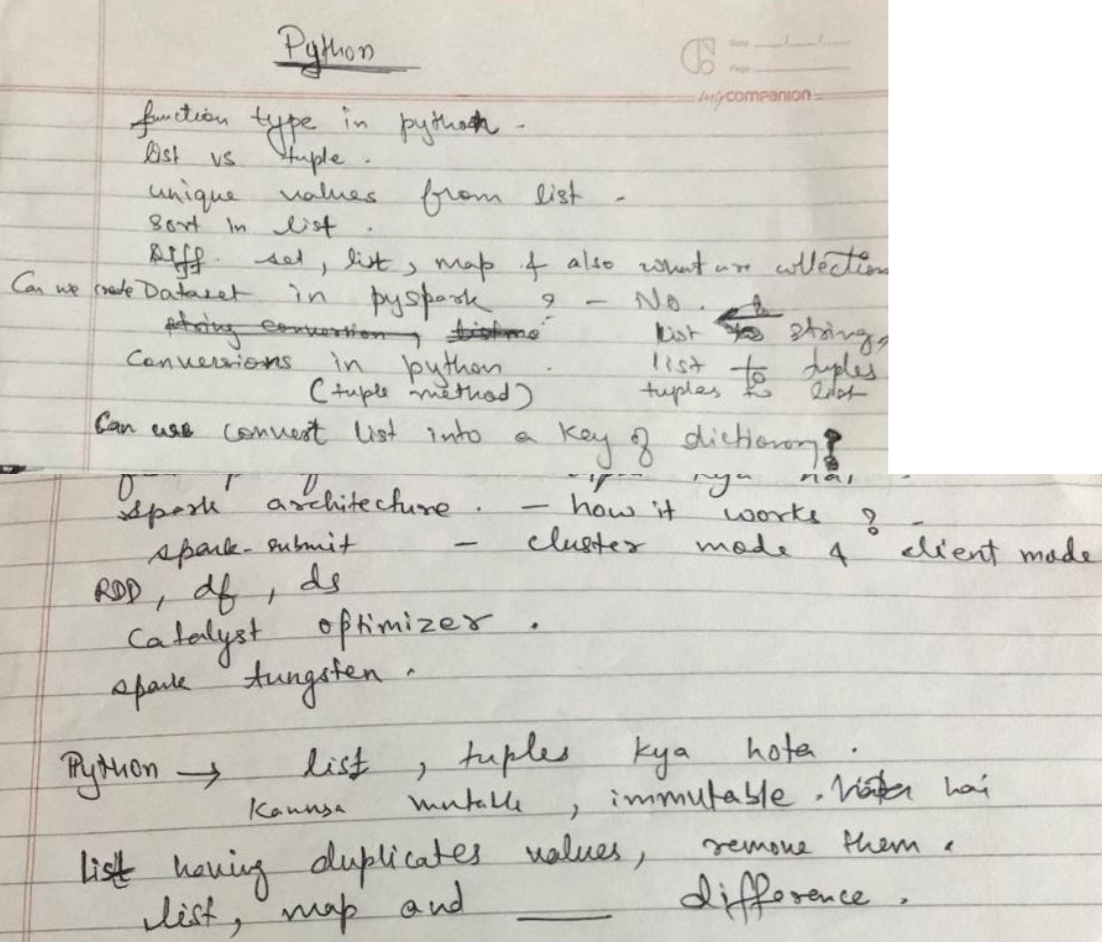 Python
Date
Page
mycompanion
function type in python -
list vs tuple.
unique values from list -
Sort in list.
Diff. set, list, map & also what are collection
Can we create Dataset in pyspark ? - No.
string conversion, list to string,
Conversions in python. list to tuples
(tuple method) tuples to list
Can use convert list into a key of dictionary?
kya hai
spark architecture. - how it works ? -
spark-submit - cluster mode & client mode
RDD, df, ds
Catalyst optimizer.
spark tungsten.
Python → list, tuples kya hota.
Kaunsa mutable, immutable. hota hai
list having duplicates values, remove them.
list, map and ____ difference.